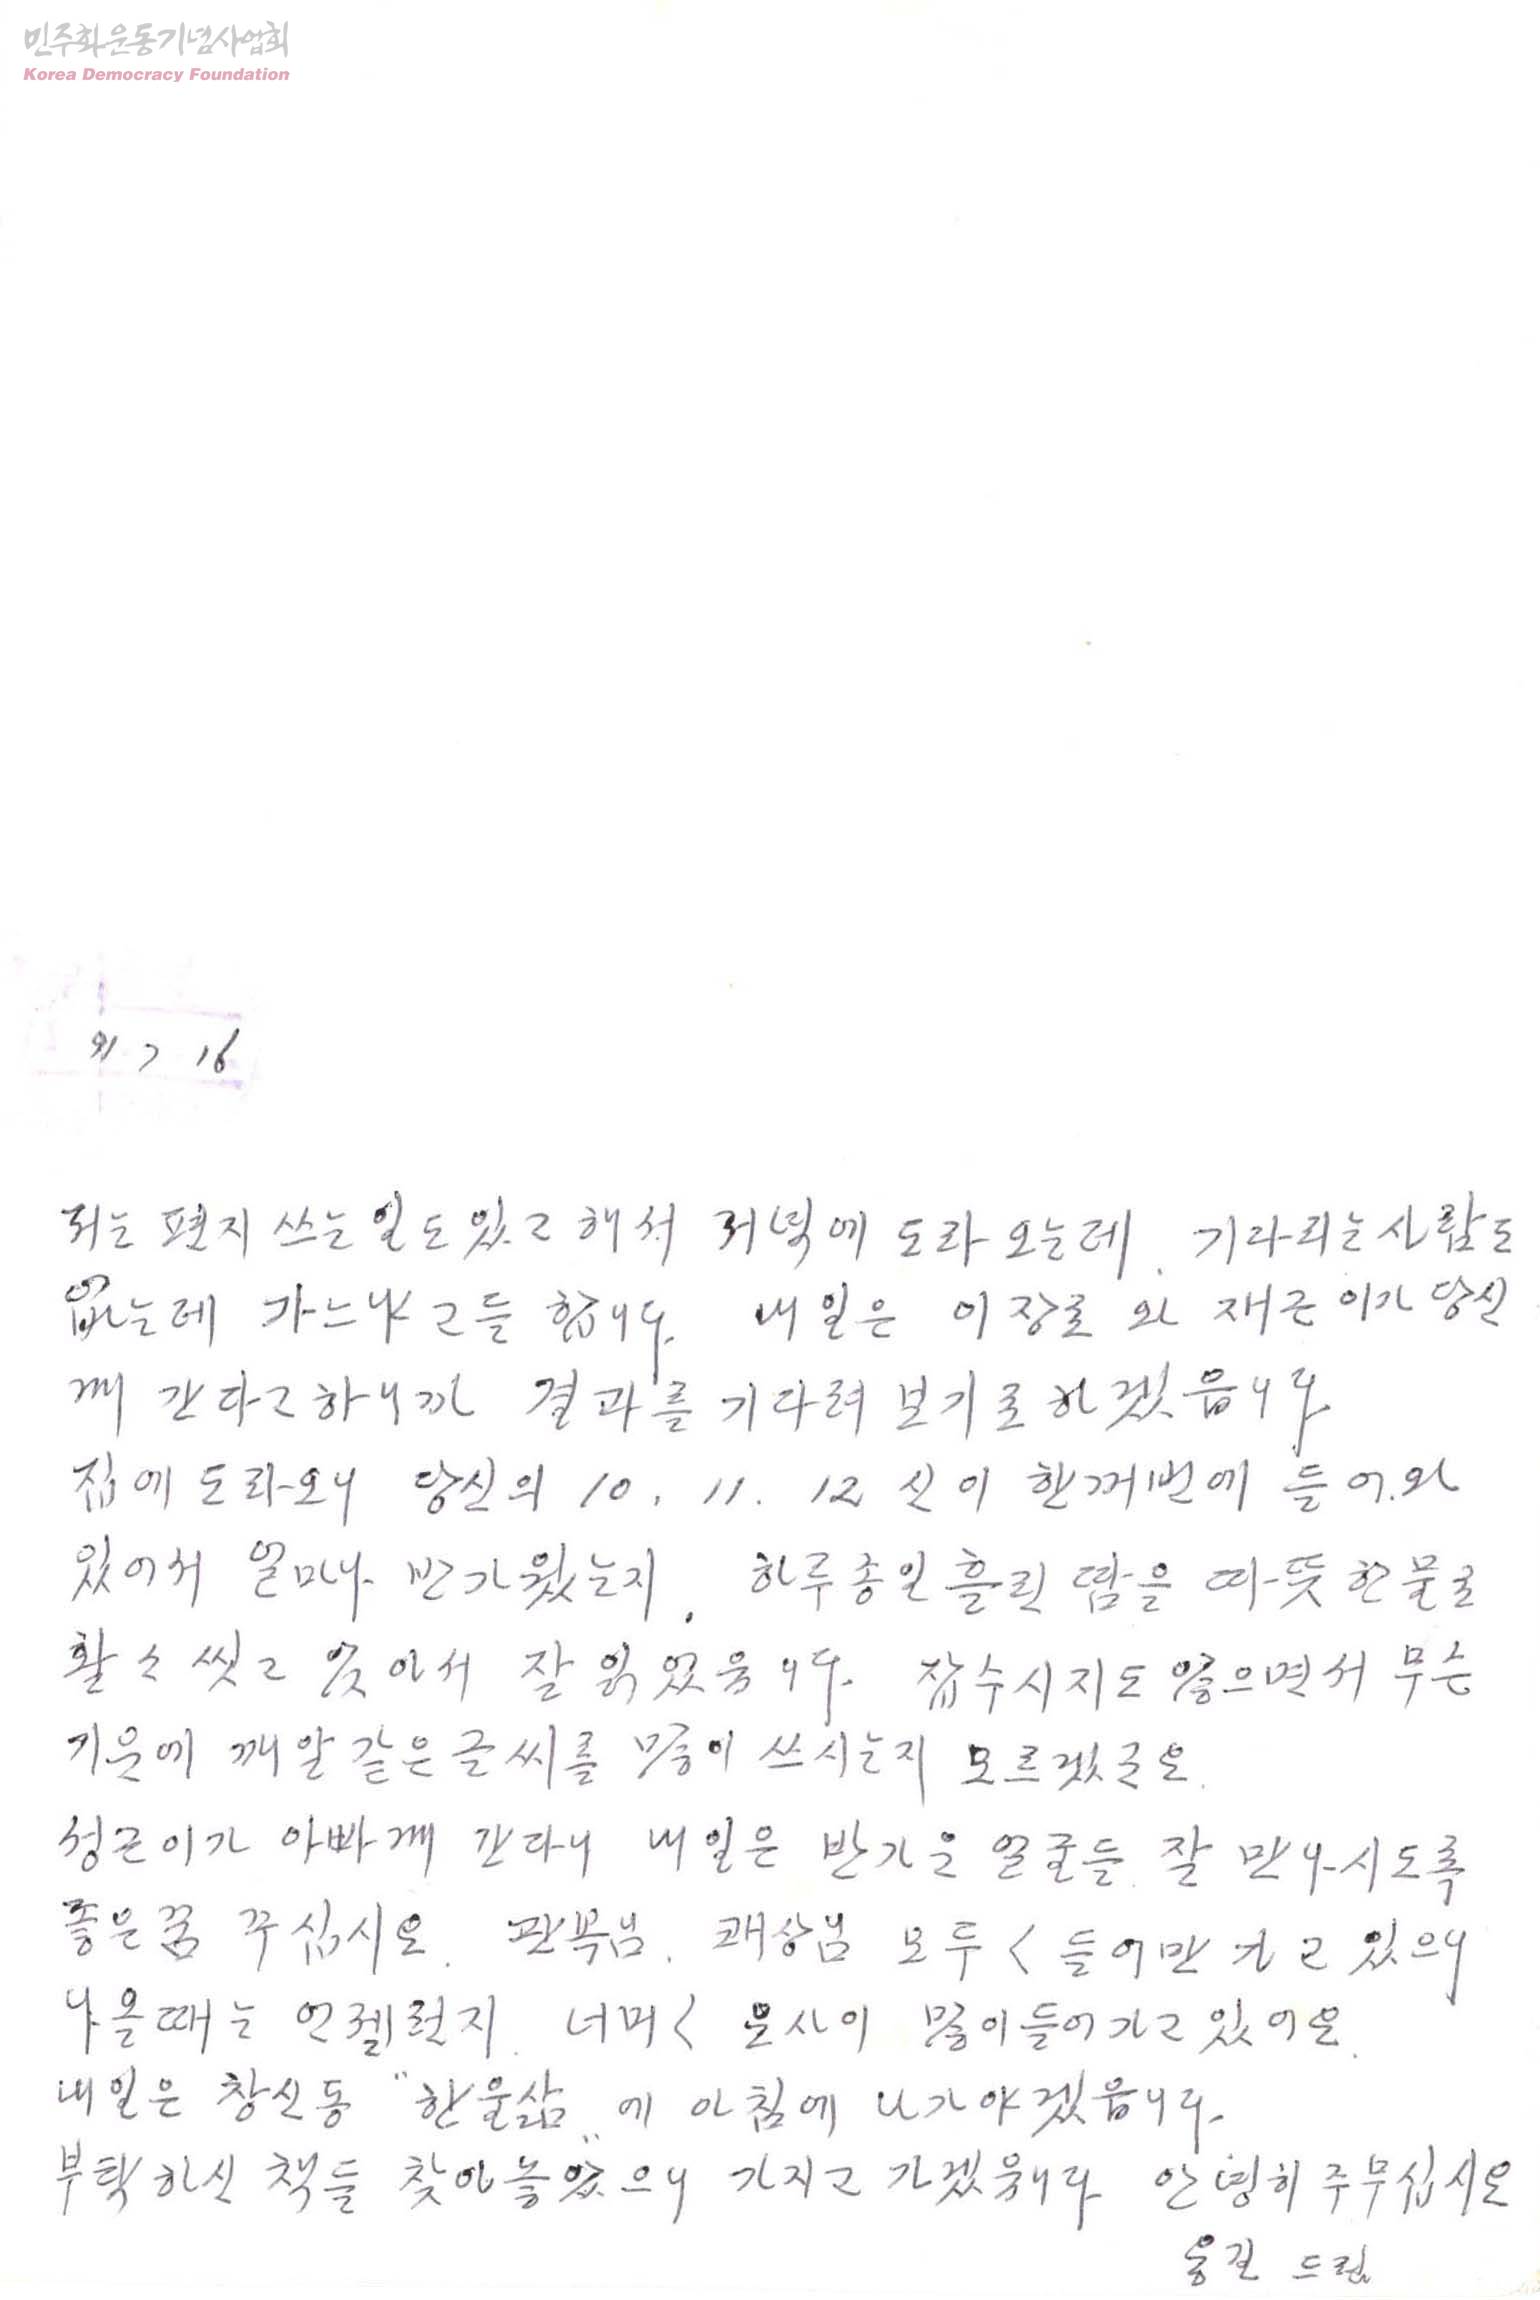 민주화운동기념사업회
Korea Democracy Foundation
91 7 16
저는 편지 쓰는 일도 있고 해서 저녁에 도라 오는데. 기다리는 사람도
없는데 가느냐고들 합니다. 내일은 이장로와 재근이가 당신
께 간다고 하니까 결과를 기다려 보기로 하겠읍니다
집에 도라오니 당신의 10. 11. 12 신이 한꺼번에 들어와
있어서 얼마나 반가웠는지. 하루종일 흘린 땀을 따뜻한 물로
활々 씻고 앉아서 잘 읽었읍니다. 잡수시지도 않으면서 무슨
기운에 깨알같은 글씨를 많이 쓰시는지 모르겠군요.
성근이가 아빠께 간다니 내일은 반가운 얼굴들 잘 만나시도록
좋은 꿈 꾸십시오. 판북님. 괘상님 모두 〱 들어만 가고 있으니
나올때는 언젤런지. 너머 〱 문사이 많이 들어가고 있어요.
내일은 창신동 "한울삶"에 아침에 나가야겠읍니다.
부탁하신 책들 찾아 놓았으니 가지고 가겠읍니다 안녕히 주무십시오
용길 드림